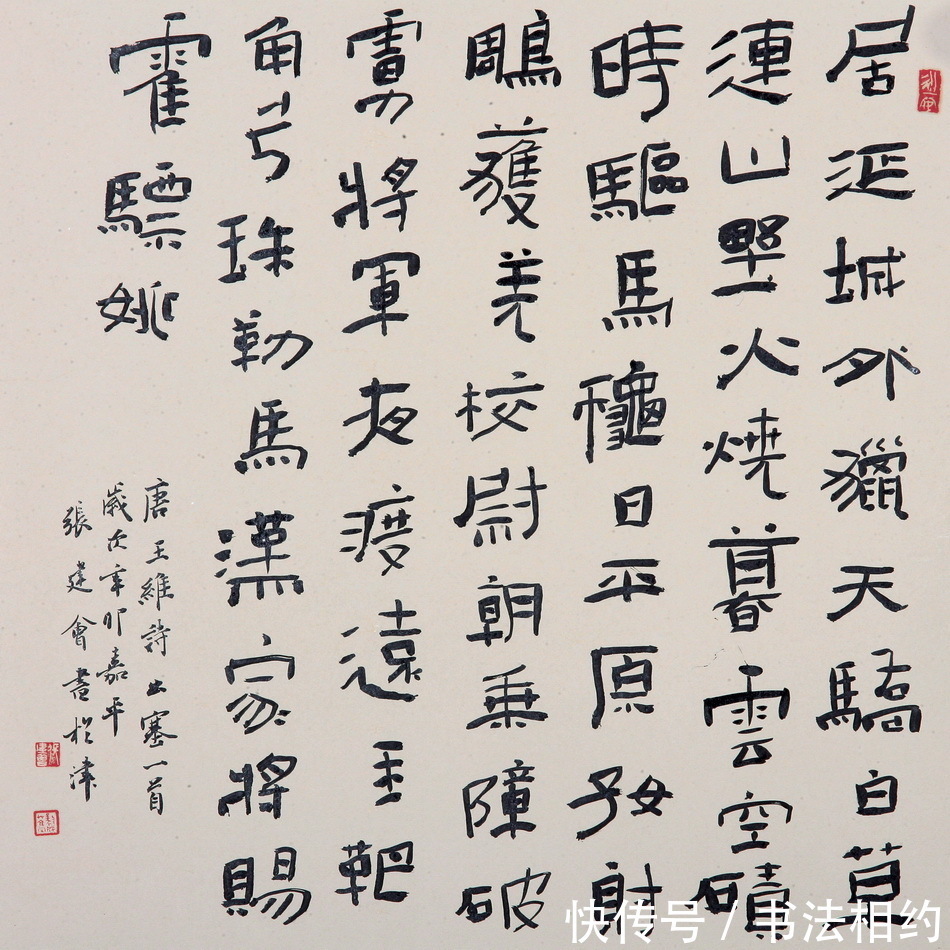 居延城外獵天驕白草
連山野火燒暮雲空磧
時驅馬穐日平原好射
鵰護羌校尉朝乘障破
虜將軍夜渡遠玉靶
角弓珠勒馬漢家將賜
霍驃姚
唐王維詩出塞一首
歲次辛卯嘉平
張建會書於津
快传号 / 书法相约